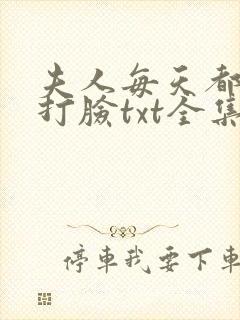 夫人每天都
打脸txt全集
停车我要下车